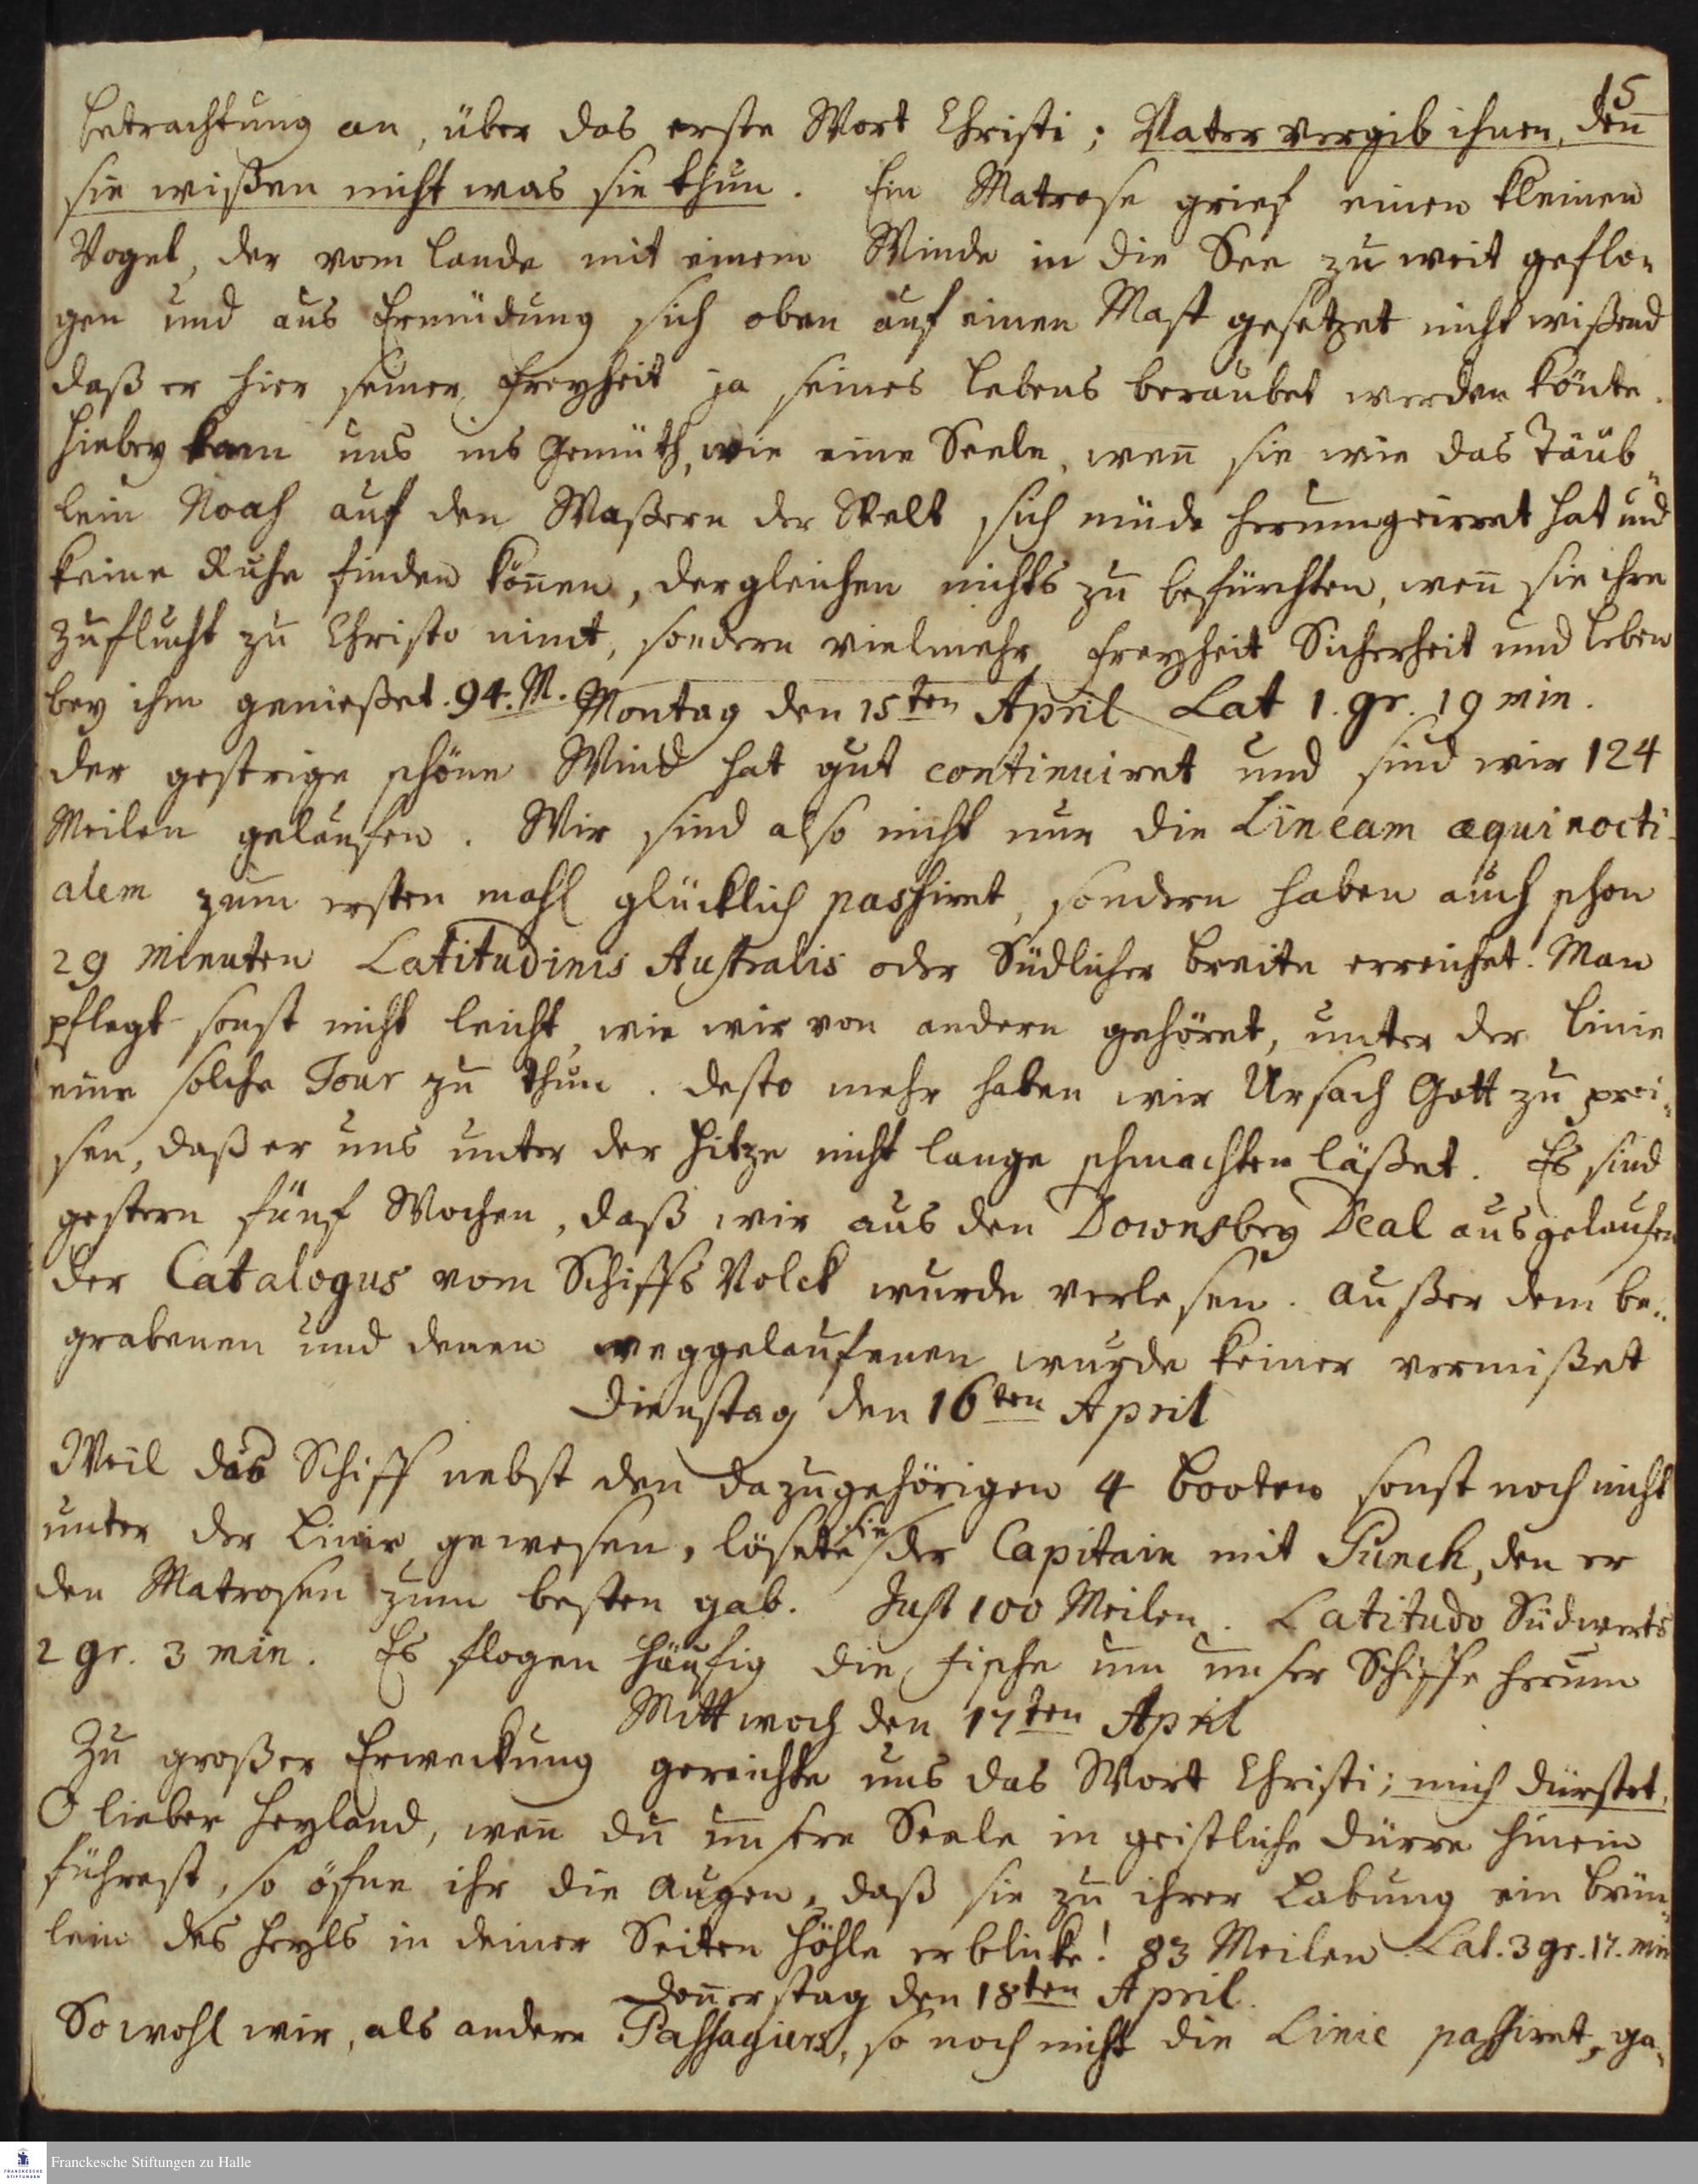 15
betrachtung an, über das erste Wort Christi; Vater vergib ihnen, deñ
sie wißen nicht was sie thun. Ein Matrose grief einen kleinen
Vogel, der vom Lande mit einem Winde in die See zu weit geflo-
gen und aus Ermüdung sich oben auf einen Mast gesetzet nicht wißend
daß er hier seiner Freyheit ja seines Lebens beraubet werden könte.
Hiebey kam uns ins Gemüth, wie eine Seele, weñ sie wie das Täub-
lein Noah auf den Waßern der Welt sich müde herumgeirret hat und
keine Ruhe finden köñen, dergleichen nichts zu befürchten, weñ sie ihre
Zuflucht zu Christo nimt, sondern vielmehr Freyheit Sicherheit und Leben
bey ihm genießet. 94. M. Montag den 15ten April Lat 1. gr. 19 min.
Der gestrige schöne Wind hat gut continuiret und sind wir 124
Meilen gelaufen. Wir sind also nicht nur die Lineam æquinocti-
alem zum ersten mahl glücklich passiret, sondern haben auch schon
29 Minuten Latitudinis Australis oder Südlicher Breite erreichet. Man
pflegt sonst nicht leicht, wie wir von andern gehöret, unter der Linie
eine solche Tour zu thun. Desto mehr haben wir Ursach Gott zu prei-
sen, daß er uns unter der Hitze nicht lange schmachten läßet. Es sind
gestern fünf Wochen, daß wir aus den Downs bey Deal ausgelaufen
Der Catalogus vom Schiffs Volck wurde verlesen. Außer dem be-
grabenen und denen weggelaufenen wurde keiner vermißet
Dienstag den 16ten April
Weil das Schiff nebst den dazugehörigen 4 Booten sonst noch nicht
unter der Linie gewesen, lösete sie der Capitain mit Punch, den er
den Matrosen zum besten gab. Just 100 Meilen. Latitudo Südwerts
2 gr. 3 min. Es flogen häufig die Fische um unser Schiffe herum
Mittwoch den 17ten April
Zu großer Erweckung gereichte uns das Wort Christi; mich dürstet.
O lieber Heyland, weñ du unsere Seele in geistliche Dürre hinein
führest, so öfne ihr die Augen, daß sie zu ihrer Labung ein Brün-
lein des Heyls in deiner Seiten Höhle erblicke! 83 Meilen Lat. 3 gr. 17. min
Doñerstag den 18ten April.
Sowohl wir, als andere Passagiers, so noch nicht die Linie passiret, ga-
Franckesche Stiftungen zu Halle
FRANCKESCHE
STIFTUNGEN